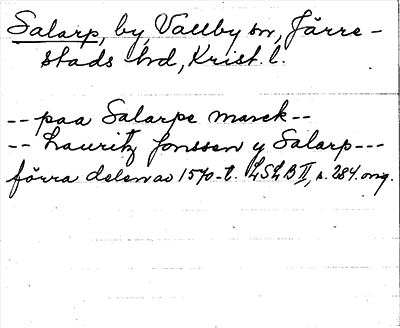 Salarp, by, Vallby sn, Järre-
stads hd, Krist. l.
-- paa Salarpe marck --
-- Lauritz Jonssen y Salarp ---
förra delen av 1570-t. LSLB II, s. 284. orig.